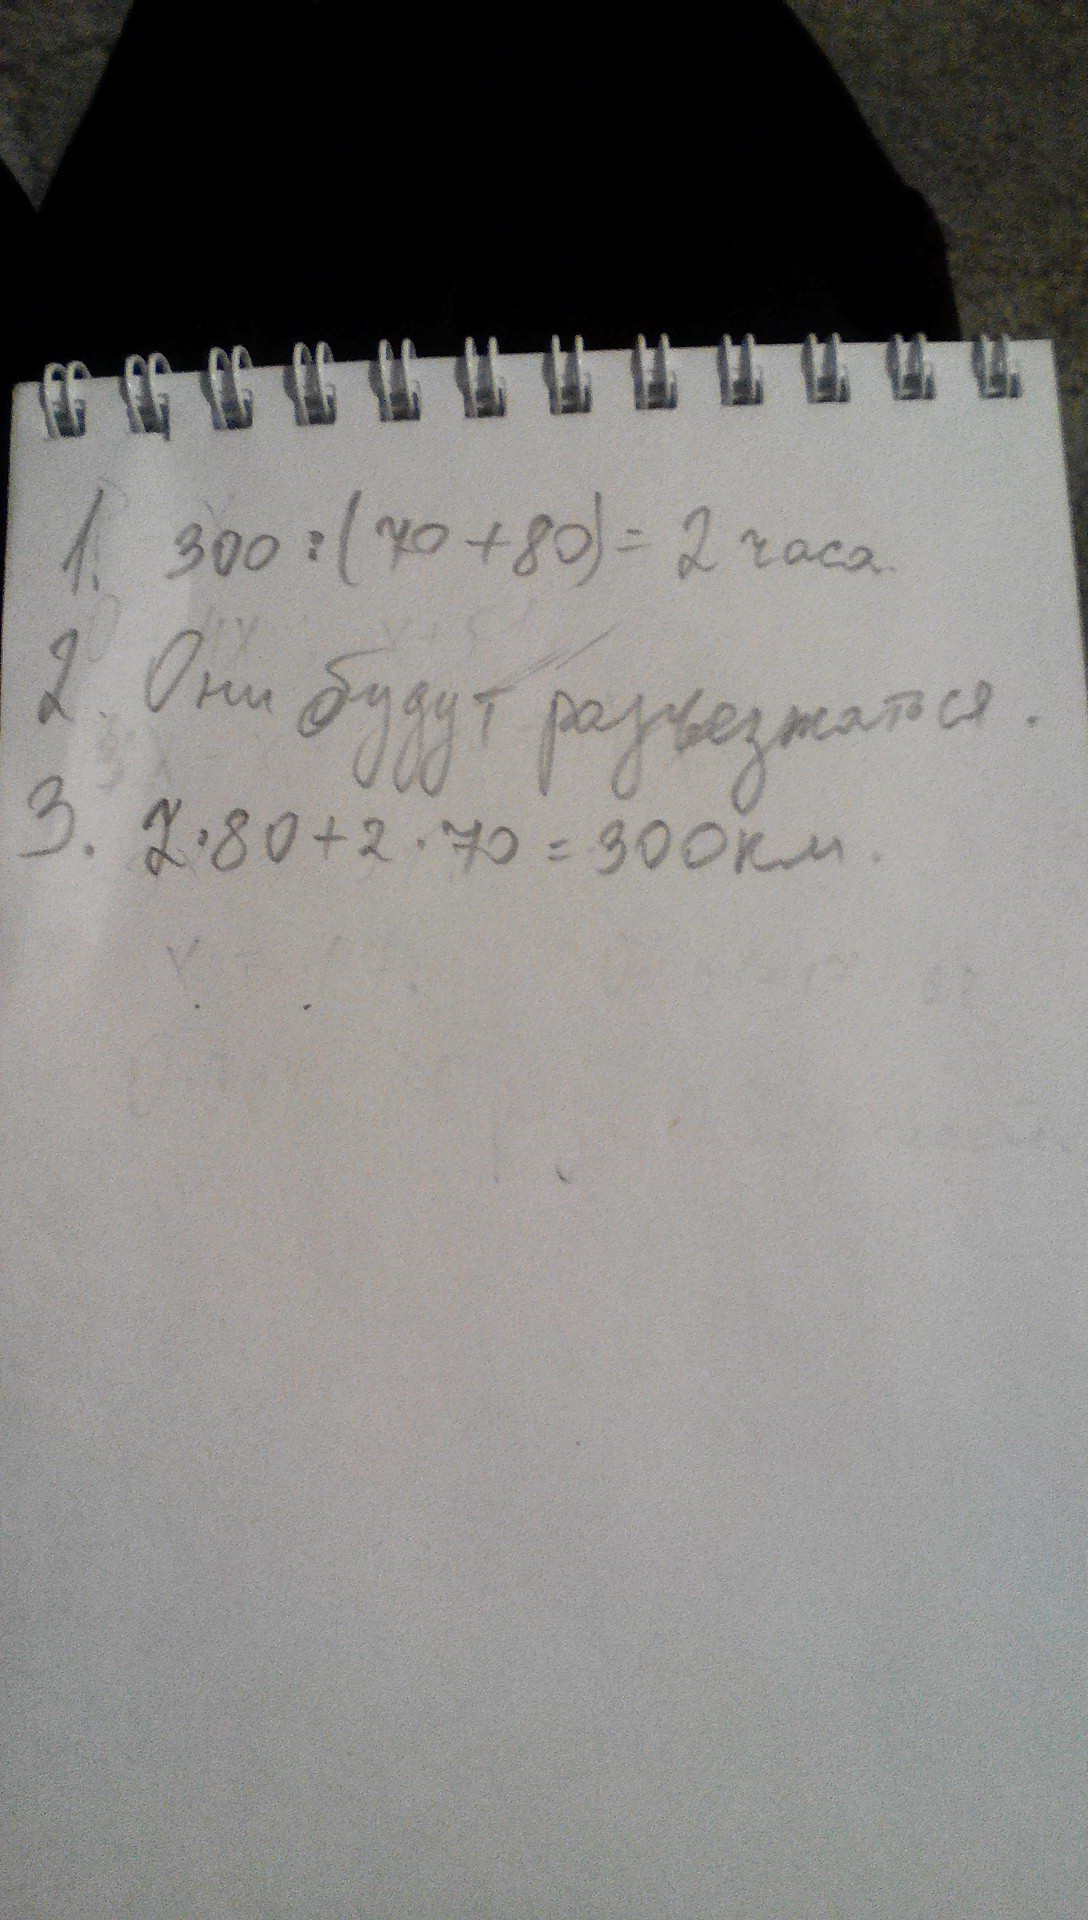 1. 300 : (70 + 80) = 2 часа.
2. Они будут разъезжаться.
3. 2·80 + 2·70 = 300 км.